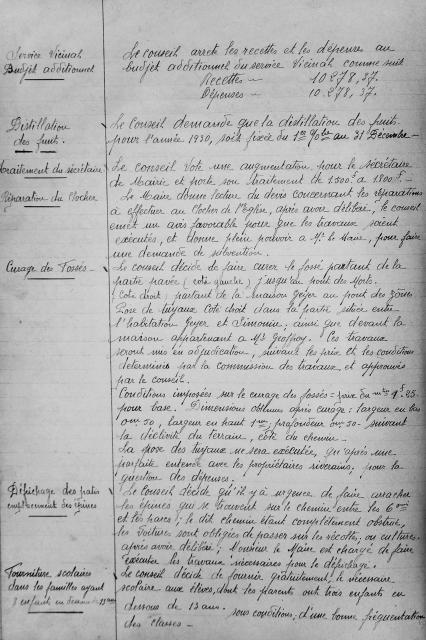 Service Vicinal
Budget additionnel
Le Conseil arrête les recettes et les dépenses au
budjet additionnel du service Vicinal comme suit
Recettes — 10.278,37.
Dépenses — 10.278,37.
Distillation
des fruits.
Le Conseil demande que la distillation des fruits
pour l'année 1930, soit fixée du 1er 8bre au 31 Décembre —
traitement du secrétaire
Le conseil vote une augmentation pour le Secrétaire
de Mairie et porte son traitement de 1.500f à 1.800f —
Réparation du Clocher
Le Maire donne lecture du devis concernant les réparations
à effectuer au Clocher de l'Eglise, après avoir délibéré, le conseil
émet un avis favorable pour que les travaux soient
exécutés, et donne plein pouvoir à Mr le Maire, pour faire
une demande de subvention.
Curage des Fossés —
Le conseil décide de faire curer le fossé partant de la
partie pavée (côté gauche) jusqu'au pont des
(côté droit) partant de la maison Geyer au pont des
Pose de tuyaux Coté droit dans la partie située entre
l'habitation Geyer et Simonin, ainsi que devant la
maison appartenant à Mr Geoffroy. Ces travaux
seront mis en adjudication, suivant les prix et les conditions
déterminés par la commission des travaux et approuvés
par le conseil.
Conditions imposées sur le curage des fossés = prix du mètre 1f.25
pour base. Dimensions obtenues après curage : largeur en bas
0m,50, largeur en haut 1m, profondeur 0m,50 suivant
la déclivité du terrain, côté du chemin —
La pose des tuyaux ne sera exécutée, qu'après une
parfaite entente avec les propriétaires riverains, pour la
question des dépenses.
Défrichage des patis
emplacement des Epines
Le Conseil décide qu'il y a urgence de faire arracher
les épines qui se trouvent sur le chemin entre les
et les parcs ; le dit chemin étant complètement obstrué,
les voitures sont obligées de passer sur les récoltes, ou cultures
après avoir délibéré, Monsieur le Maire est chargé de faire
exécuter les travaux nécessaires pour le défrichage.
Fourniture scolaires
dans les familles ayant
3 enfants en dessous de 13 ans
Le conseil décide de fournir gratuitement, le nécessaire
scolaire aux élèves, dont les parents ont trois enfants en
dessous de 13 ans. sous conditions, d'une bonne fréquentation
des classes —